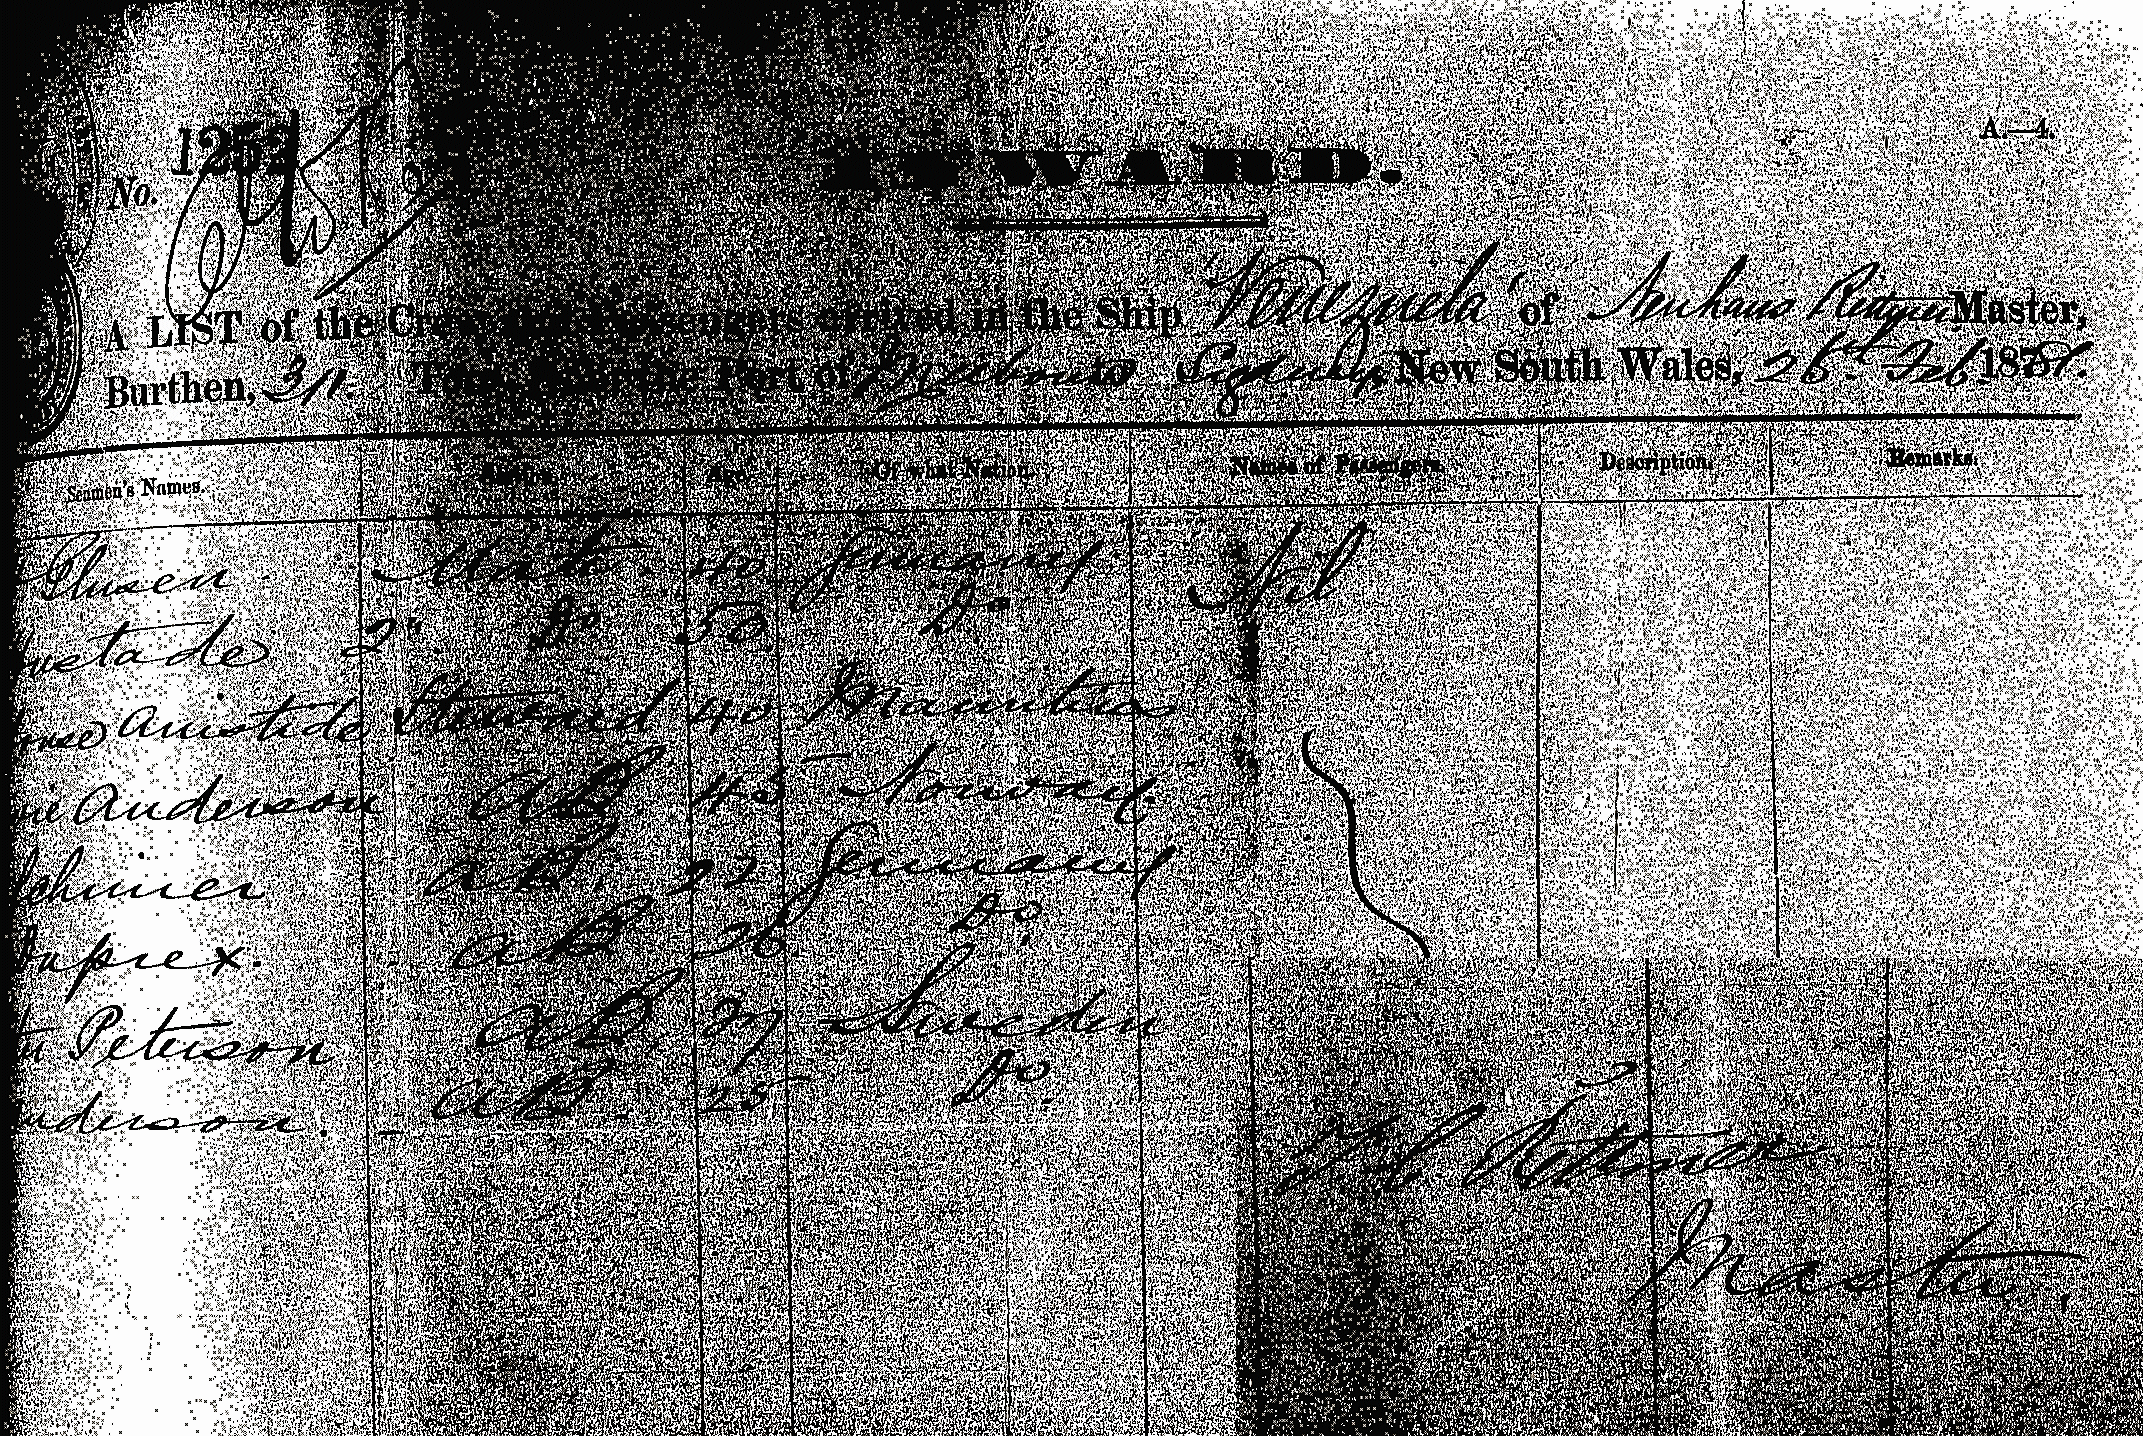 A.—4.
No. 1252
INWARD.
A LIST of the Crew and Passengers arrived in the Ship 'Venezuela' of Master,
Burthen, 311. Tons, from the Port of Melbourne to Sydney, New South Wales, 26th Feb 187
Seamen's Names. Station. Age. Of what Nation. Names of Passengers. Description. Remarks.
Clusen Mate 40 Germany. Nil
2" Do 50 Do
Aristide Steward 40 Mauritius
Anderson AB 45 Norway.
AB. 22 Germany
Duprex. AB 26 Do.
Peterson AB 27 Sweden
Anderson. AB. 25 Do.
Master.